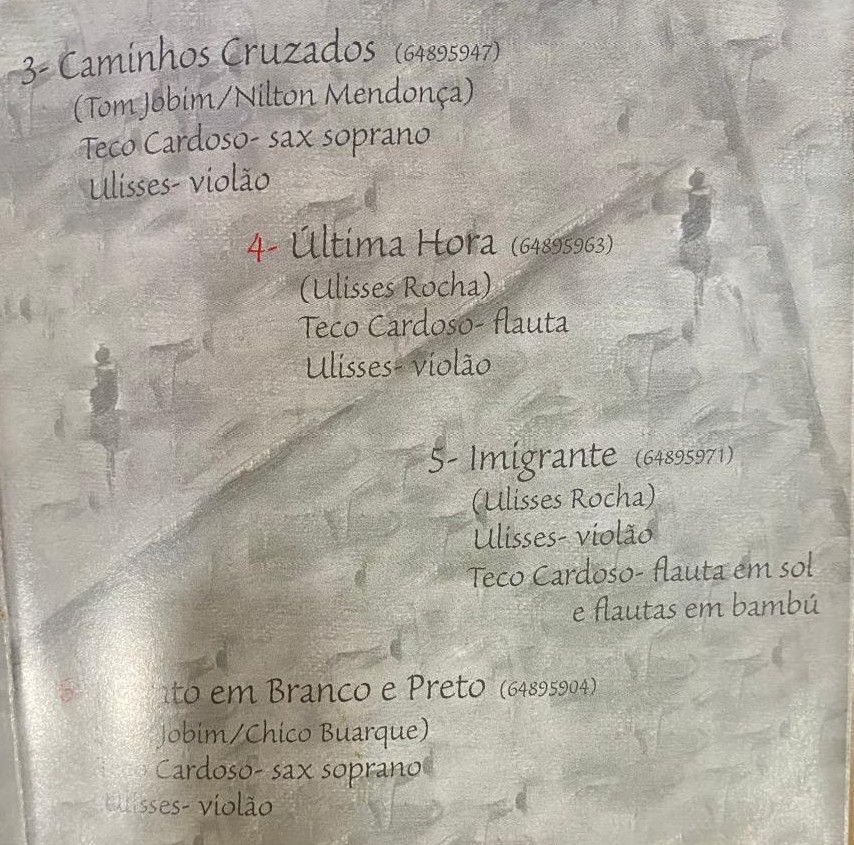 3- Caminhos Cruzados (64895947)
(Tom Jobim/Nilton Mendonça)
Teco Cardoso- sax soprano
Ulisses- violão
4- Última Hora (64895963)
(Ulisses Rocha)
Teco Cardoso- flauta
Ulisses- violão
5- Imigrante (64895971)
(Ulisses Rocha)
Ulisses- violão
Teco Cardoso- flauta em sol
e flautas em bambú
em Branco e Preto (64895904)
Jobim/Chico Buarque)
Cardoso- sax soprano
Ulisses- violão